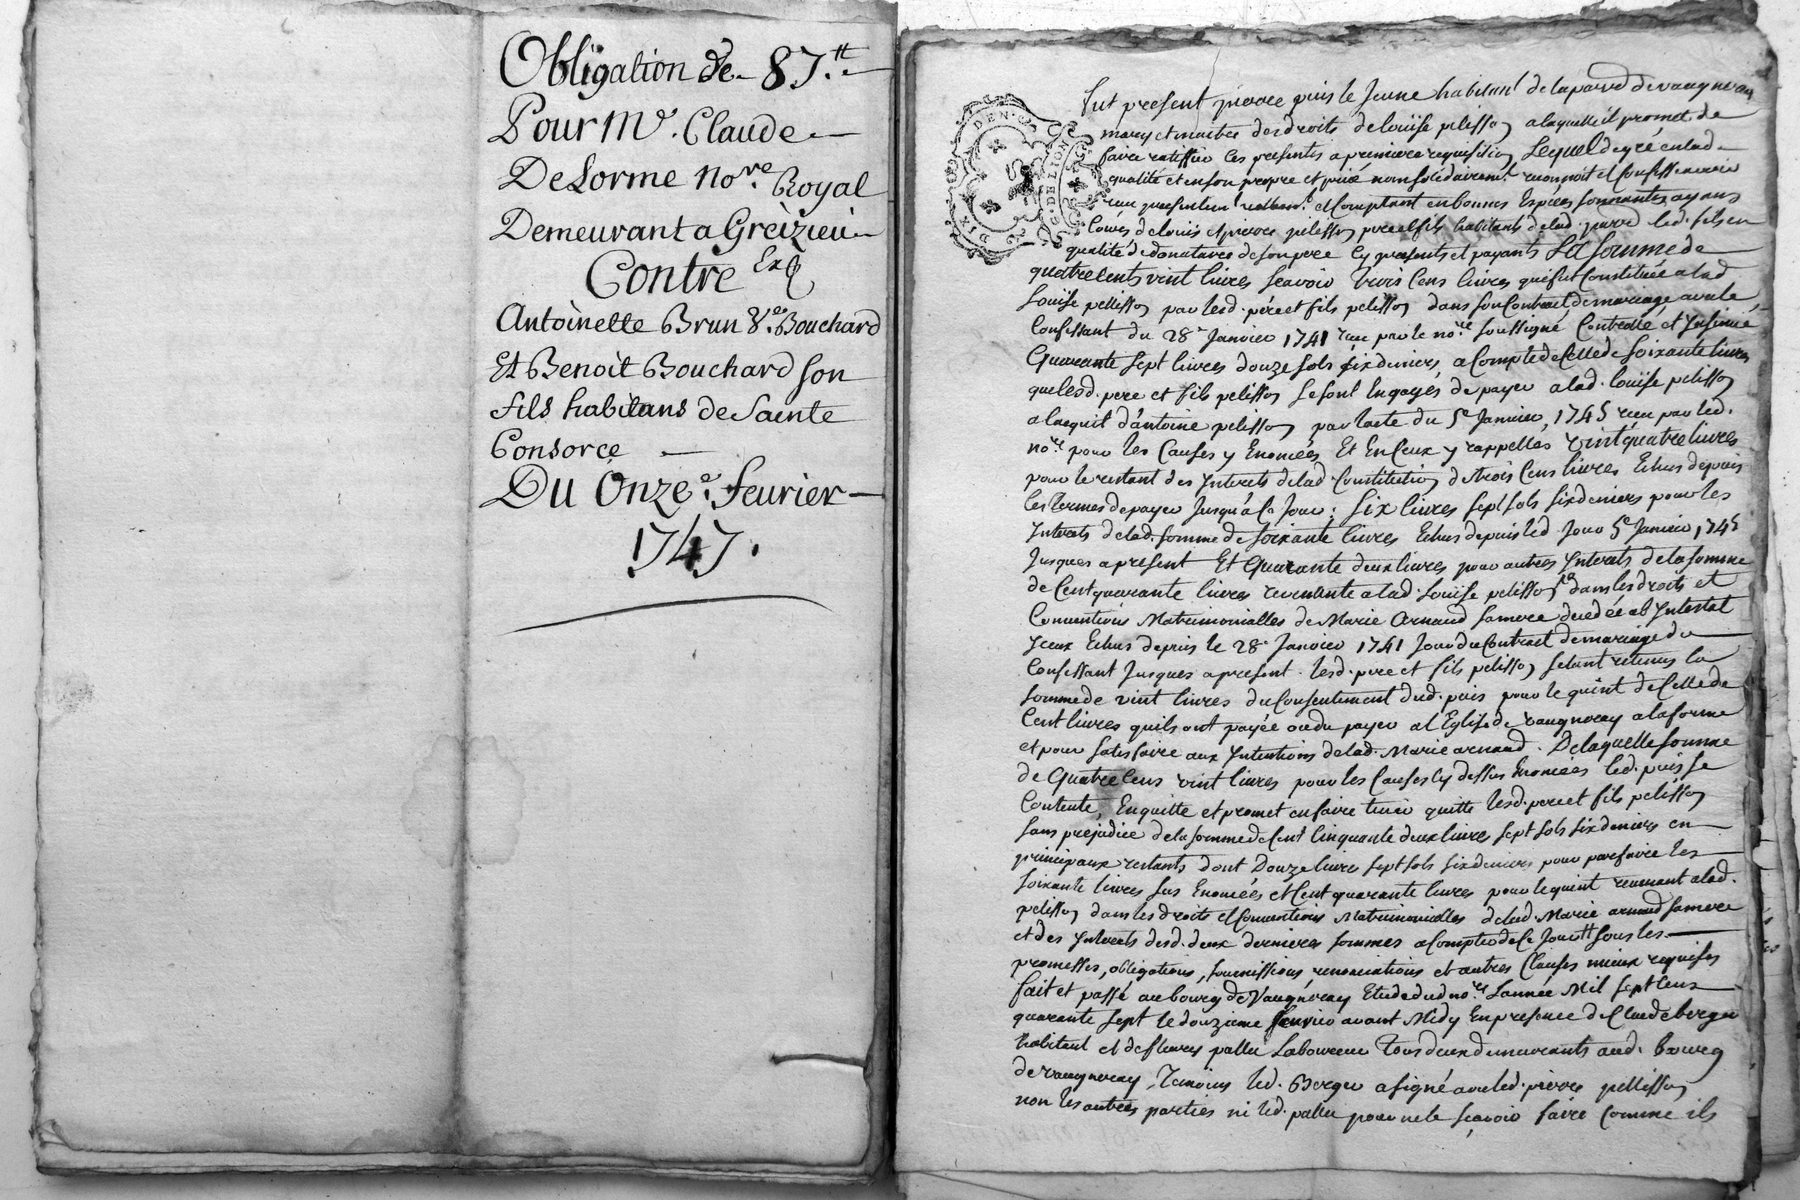 Obligation de 87.tt
Pour Mr. Claude
DeLorme Nore. Royal
Demeurant a Greizieu
Contre Exq
Antoinette Brun Ve. Bouchard
Et Benoit Bouchard son
fils habitans de Sainte
Consorce
Du Onze.e feurier
1747.
DEN. G
DE LION
fut present pierre puis le Jeune habitant de la parr. de vaugneray
mary et maitre des droits de louise pelisson a laquelle il promet de
faire ratiffier ces presentes a premiere requisition Lequel de gré en lad.
qualité et en son propre et privé nom solidairemt. reconnoit et Confesse avoir
reçu presentemt. et Comptant en bonnes Espéces sonnantes ayans
Cours de louis et pierre pelisson pere et fils habitants de lad. parr. led. fils en
qualité de donataire de son pere Cy presents et payants La somme de
quatre cents vint livres scavoir trois Cens livres qui fut Constituée a lad
Louise pellisson par lesd. pére et fils pelisson dans son Contract de mariage avec le
Confessant du 28e Janvier 1741 reçu par le nore. soussigné Controllé et Insinué
Quarante sept livres douze sols six deniers, a Compte de Celle de soixante livres
que lesd. pere et fils pelisson se sont Engagés de payer a lad. louise pelisson
a lacquit d'antoine pelisson par lacte du 5e Janvier, 1745 reçu par led.
nore. pour les Causes y Enoncées Et En Ceux y rappellés vint quatre livres
pour le restant des Interets de lad. Constitution de trois Cens livres Echus depuis
les termes de payer Jusqu'à Ce Jour; six livres sept sols six deniers pour les
Interets de lad. somme de soixante livres Echus depuis led Jour 5e Janvier 1745
Jusques a present Et Quarante deux livres pour autres Interets de la somme
de Cent quarante livres revenante a lad. Louise pelisson dans les droits et
Conventions Matrimonialles de Marie Arnaud sa mere decedée ab Intestat
Iceux Echus depuis le 28e Janvier 1741 Jour du Contract de mariage du
Confessant Jusques a present. lesd. pere et fils pelisson setant retenus la
somme de vint livres du Consentement dud. puis pour le quint de Celle de
Cent livres quils ont payée ou du payer a l'Eglise de vaugneray a la forme
et pour satisfaire aux Intentions de lad. Marie arnaud. De laquelle somme
de Quatre Cens vint livres pour les Causes Cy dessus Enoncées led. puis se
Contente, En quitte et promet en faire tenir quitte lesd. pere et fils pelisson
sans prejudice de la somme de Cent Cinquante deux livres sept sols six deniers en
principaux restants dont Douze livres sept sols six deniers pour parfaire les
soixante livres sus Enoncées et Cent quarante livres pour le quint revenant a lad.
pelisson dans les droits et Conventions Matrimonialles de lad. Marie arnaud sa mere
et des Interets desd. deux dernieres sommes a Compter de Ce Jourd. sous les
promesses, obligations, soumissions, renonciations et autres Clauses mieux requises
fait et passé au bourg de Vaugneray Etude dud nore. Lannée Mil sept Cens
quarante sept le douzieme fevrier avant Midy En presence de Claude berger
habitant et de fleury pallu Laboureur tous deux demeurants aud. bourg
de vaugneray, Temoins led. Berger a signé avec led. pierre pellisson
non les autres parties ni led. pallu pour ne le sçavoir faire comme ils